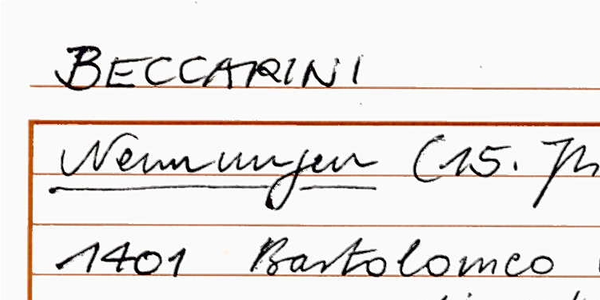 BECCARINI
Nennungen (15. Jh
1401 Bartolomeo